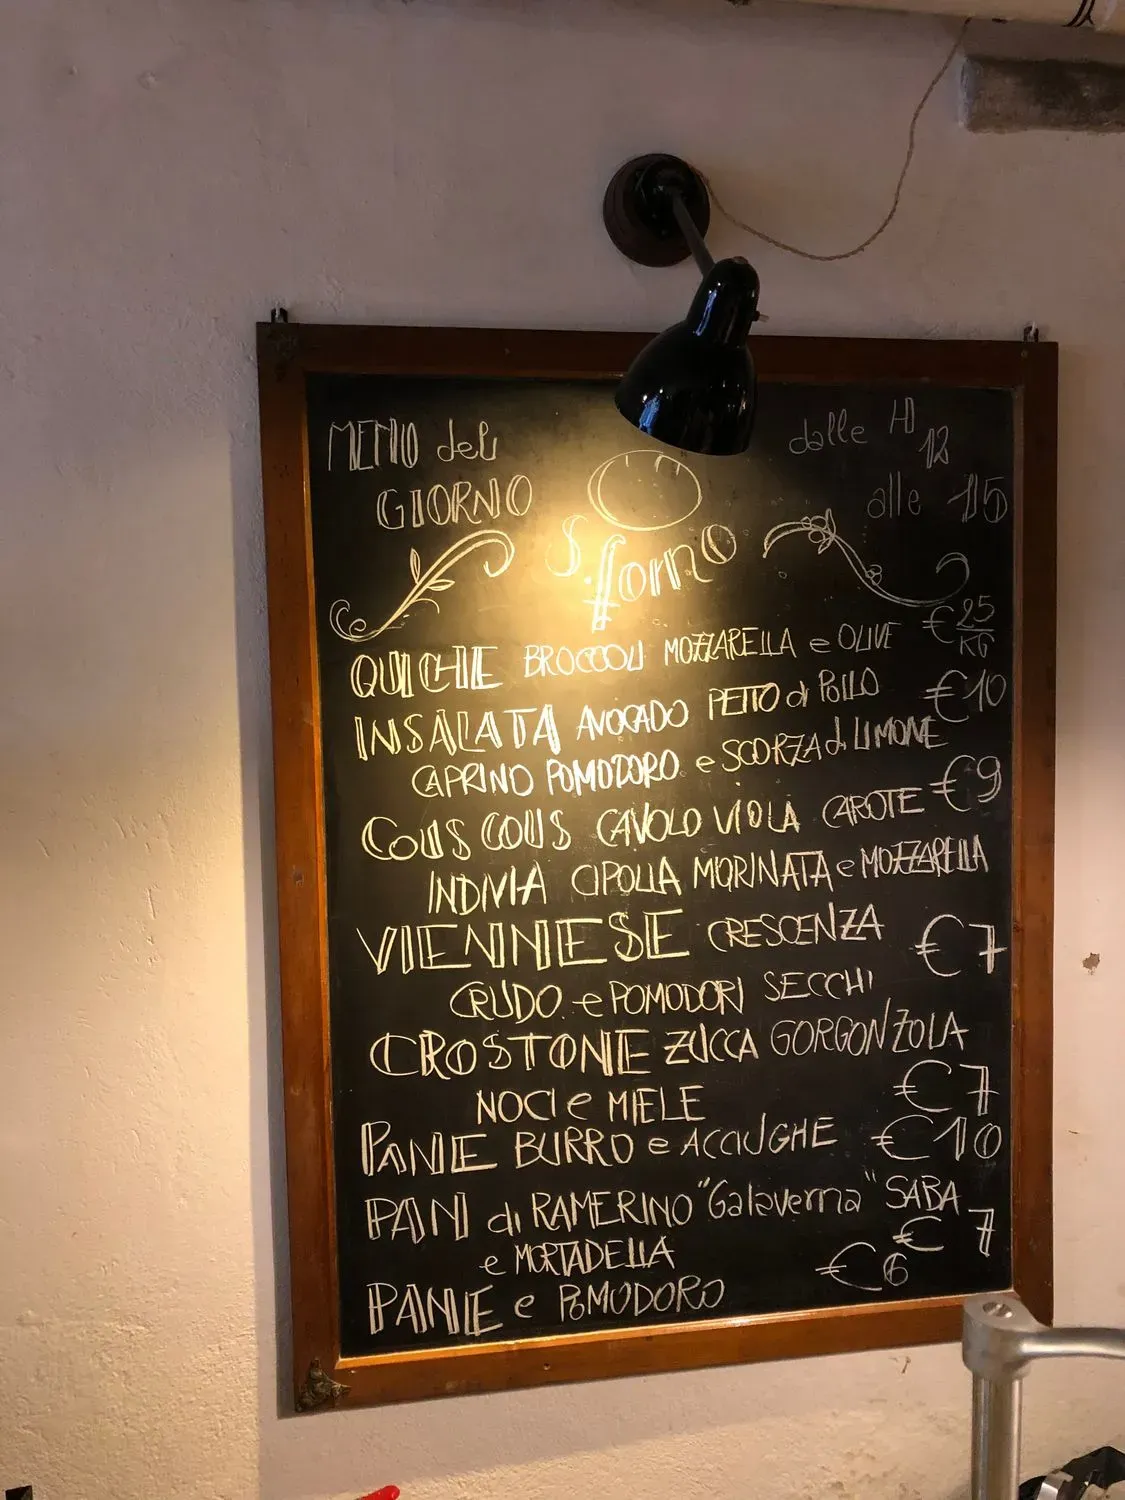 MENU del
GIORNO
dalle H 12
alle 15
S. forno
QUICHE BROCCOLI MOZZARELLA e OLIVE €25/KG
INSALATA AVOCADO PETTO di POLLO €10
CAPRINO POMODORO e SCORZA di LIMONE
COUS COUS CAVOLO VIOLA CAROTE €9
INDIVIA CIPOLLA MARINATA e MOZZARELLA
VIENNESE CRESCENZA €7
CRUDO e POMODORI SECCHI
CROSTONE ZUCCA GORGONZOLA
NOCI e MIELE €7
PANE BURRO e ACCIUGHE €10
PAN di RAMERINO "Galaverna" SABA
e MORTADELLA €7
PANE e POMODORO €6